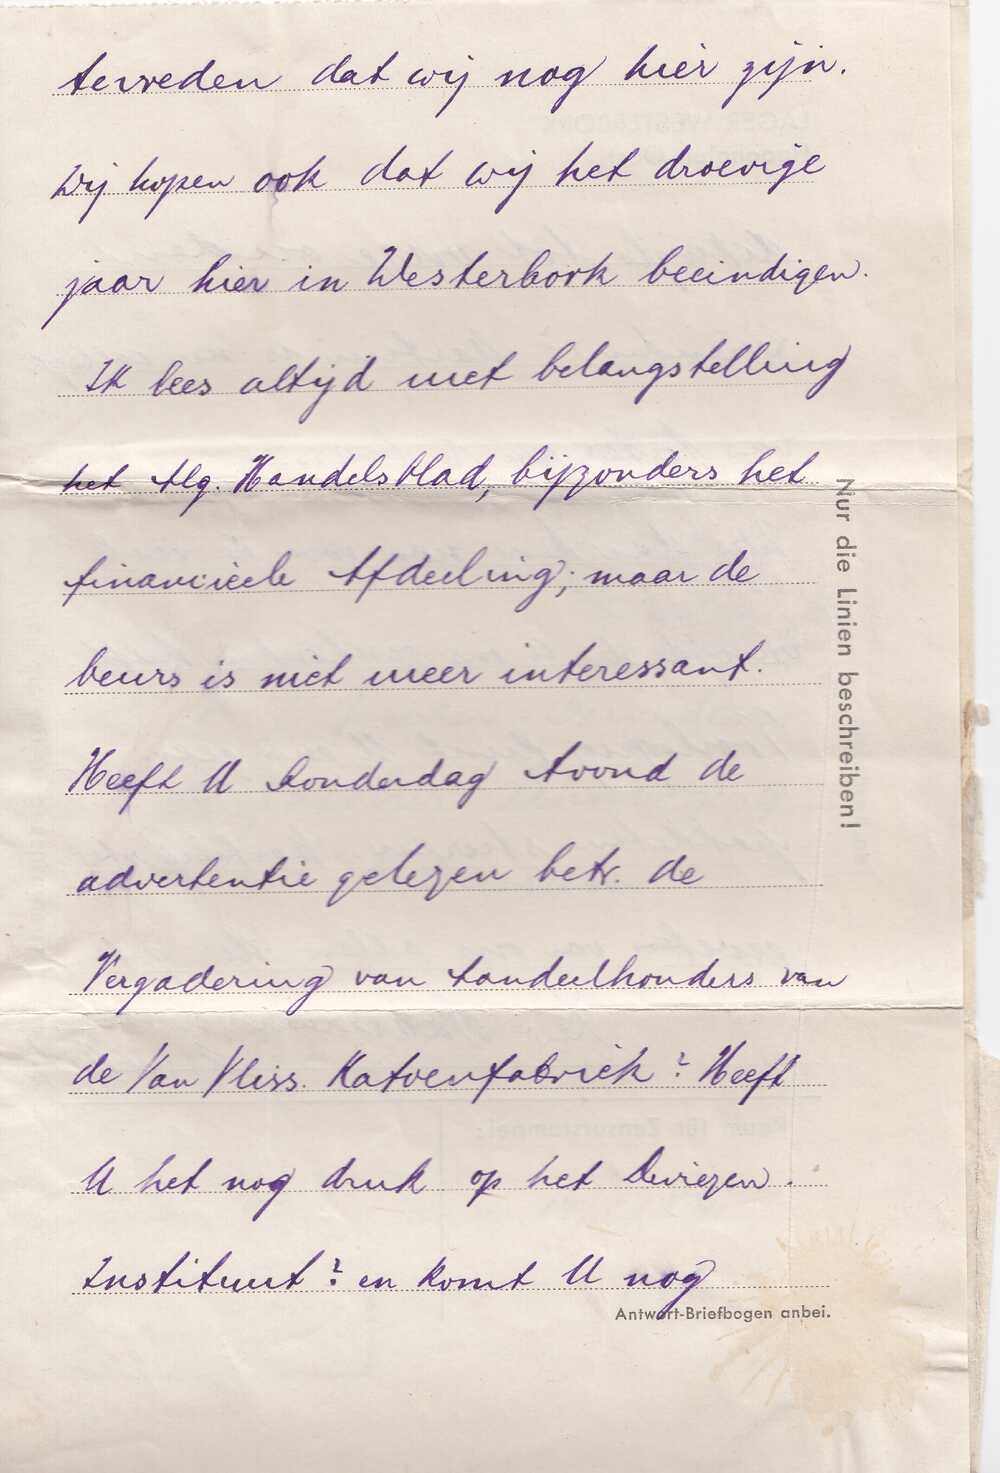 tevreden dat wij nog hier zijn.
Wij hopen ook dat wij het droevige
jaar hier in Westerbork beeindigen.
Ik lees altijd met belangstelling
het Alg. Handelsblad, bijzonders het
financieele Afdeeling; maar de
beurs is niet meer interessant.
Heeft U Donderdag Avond de
advertentie gelezen betr. de
Vergadering van Aandeelhouders van
de Van Vliss. Katoenfabriek? Heeft
U het nog druk op het Deviezen.
Instituut? en komt U nog
Nur die Linien beschreiben!
Antwort-Briefbogen anbei.